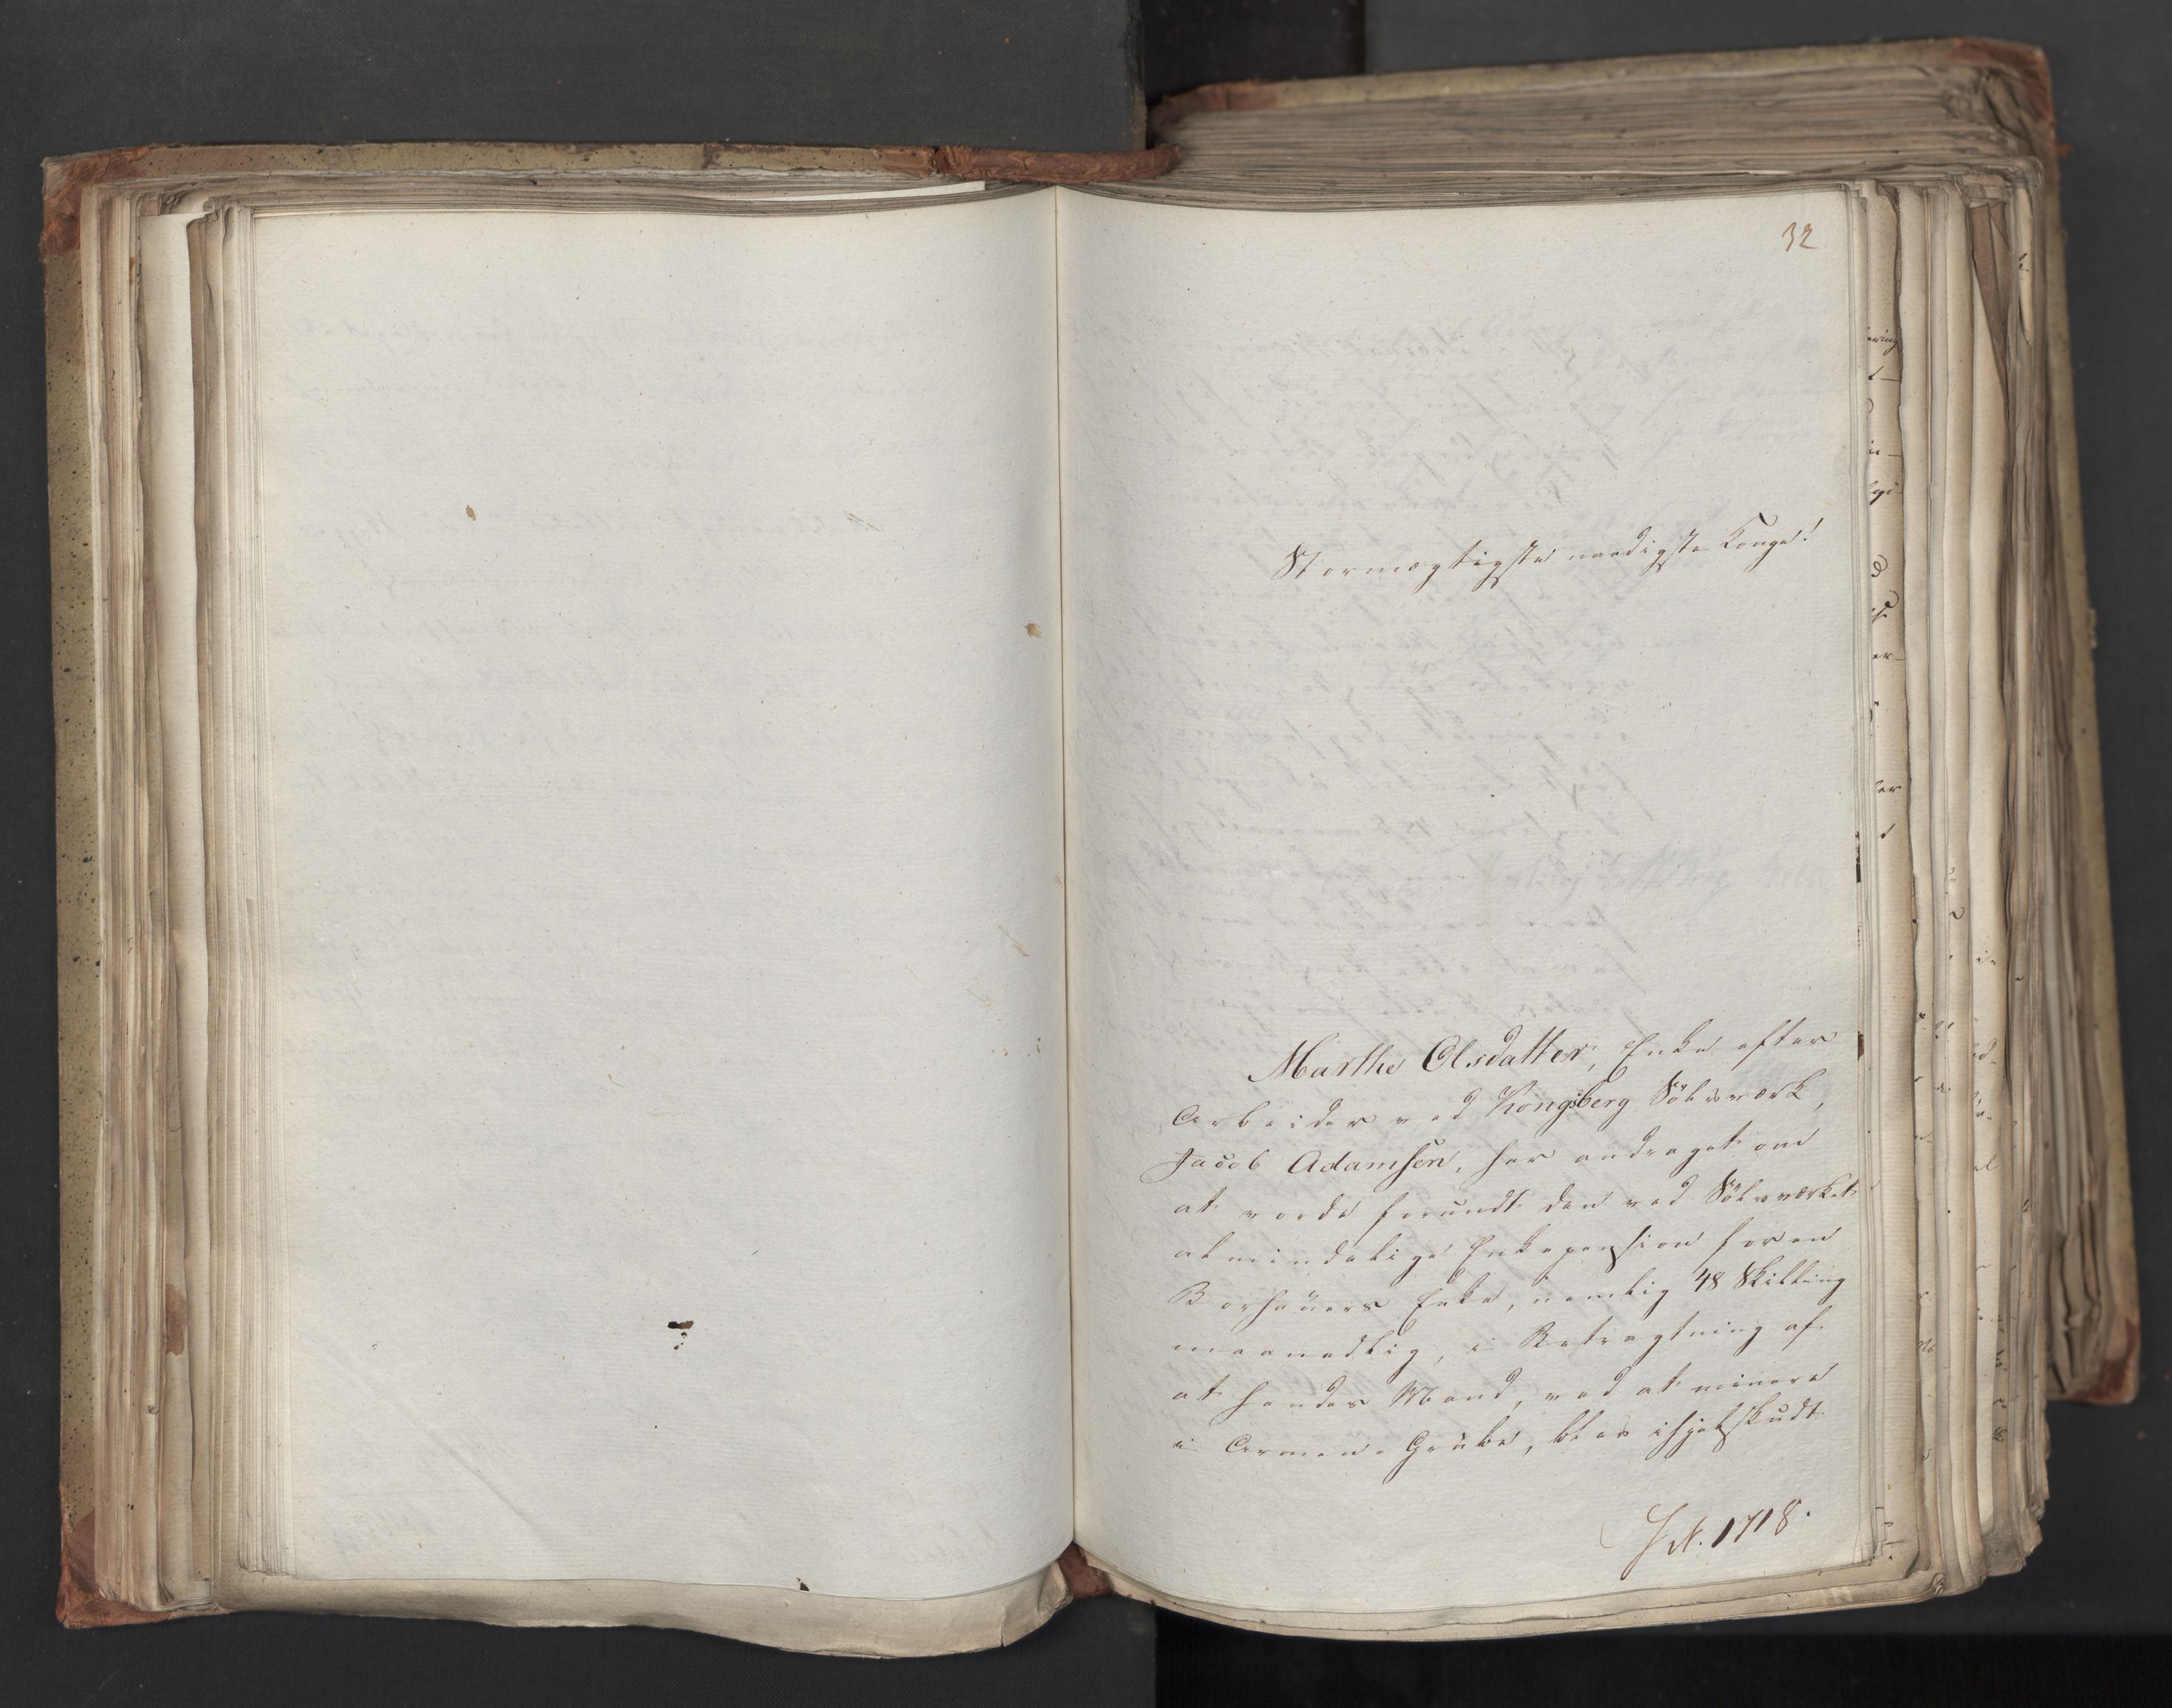 32
Stormægtigste naadigste Konge!
Marthe Olsdatter, Enke efter
Arbeider ved Kongsberg Sölvværk,
Jacob Adamsen, har andraget om
at vorde forundt den ved Sölvværket
almindelige Enkepension for en
Borhauers Enke, nemlig 48 Skilling
maanedlig, i Betragtning af
at hendes Mand, ved at minere
i Armen-Grube, blev ihjelskudt
No. 1718.